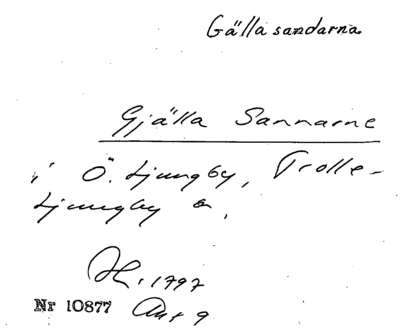 Gällasandarna
Gjälla Sannarne
i Ö. Ljungby, Trolle-
Ljungby s.,
H. 1797
Nr 10877 Akt 9